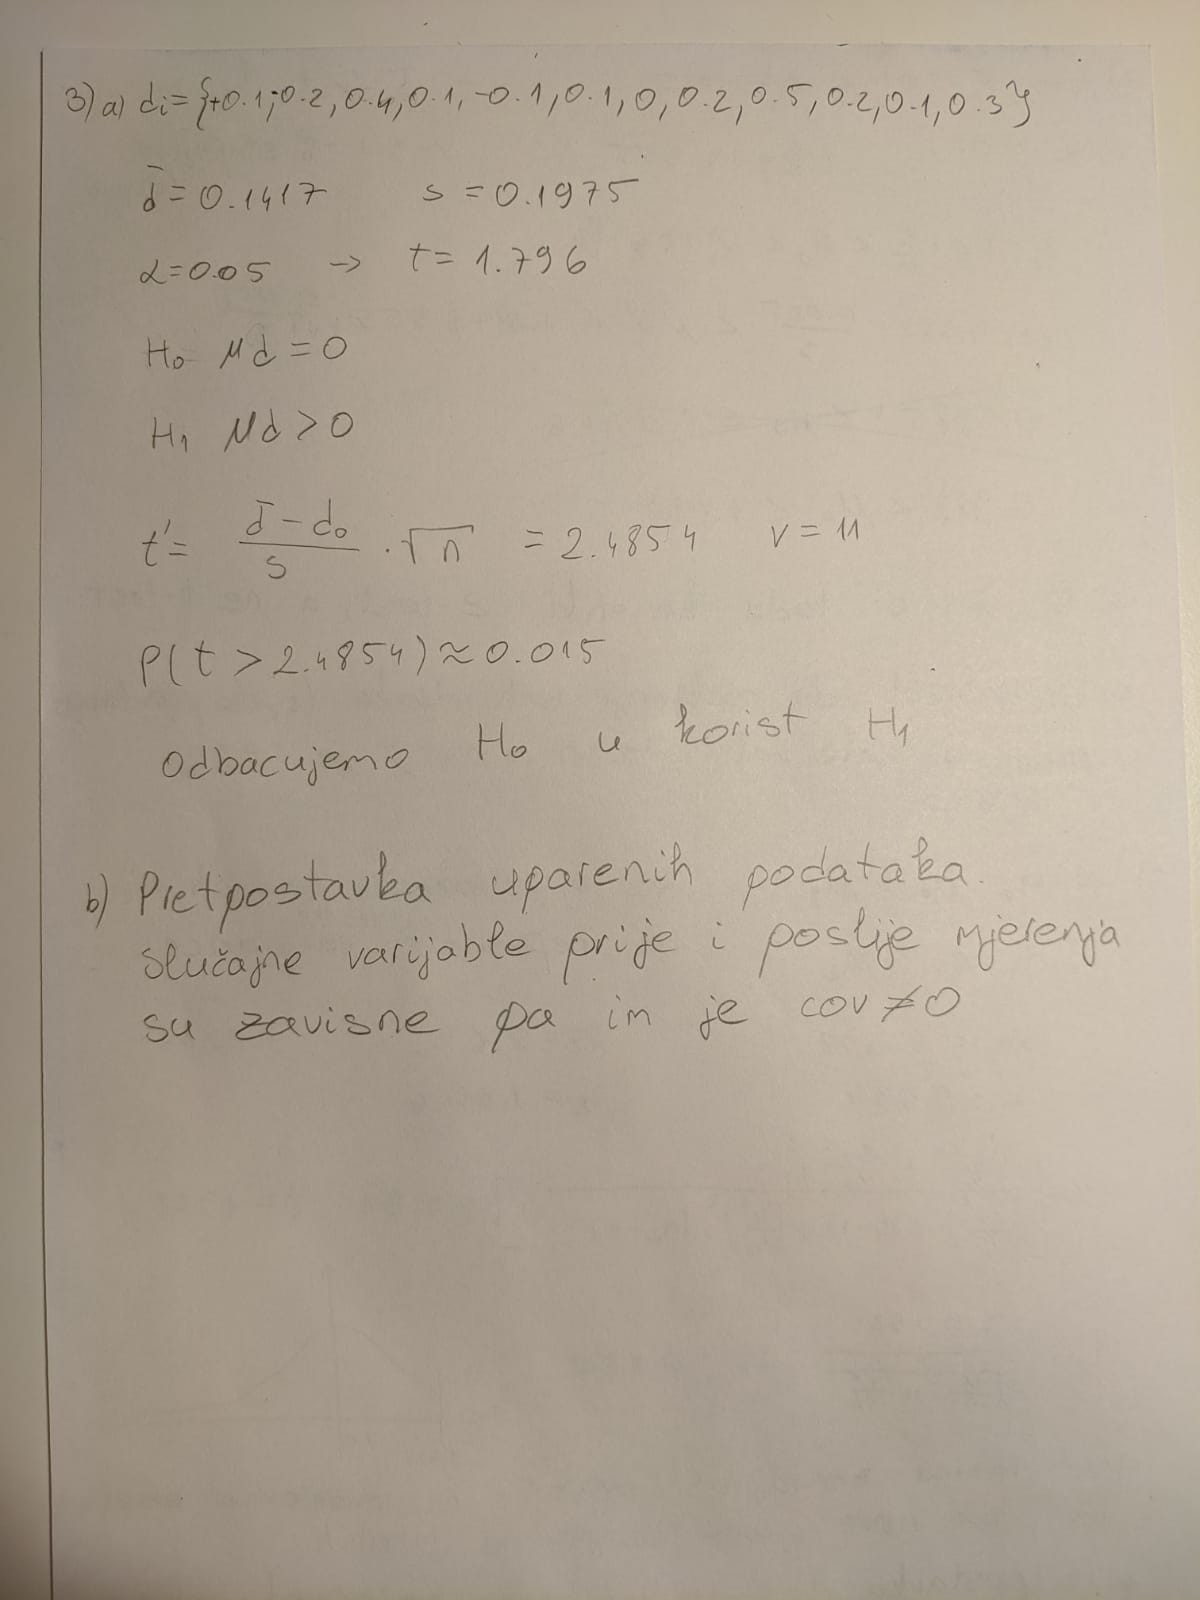 3) a) di = {+0.1; -0.2, 0.4, 0.1, -0.1, 0.1, 0, 0.2, 0.5, 0.2, 0.1, 0.3}
d̄ = 0.1417 s = 0.1975
α = 0.05 → t = 1.796
H₀ μd = 0
H₁ μd > 0
t' = (d̄ - d₀)/s · √n = 2.4854 v = 11
P(t > 2.4854) ≈ 0.015
Odbacujemo H₀ u korist H₁
b) Pretpostavka uparenih podataka.
Slučajne varijable prije i poslije mjerenja
su zavisne pa im je cov ≠ 0